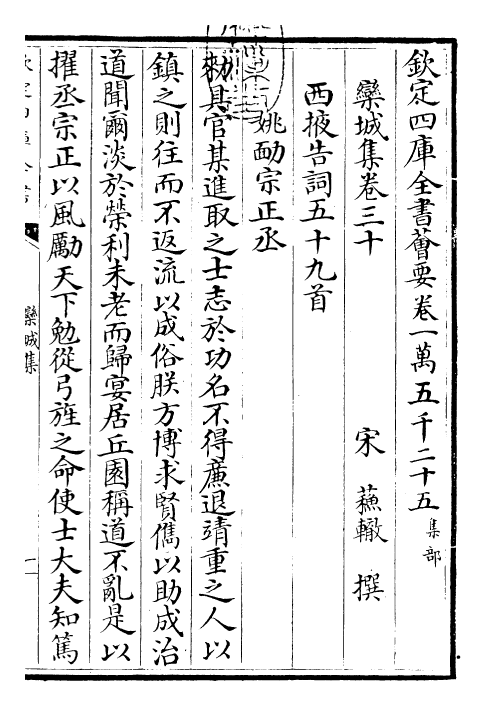 欽定四庫全書薈要卷一萬五千二十五 集部
欒城集卷三十 宋 蘇轍 撰
西掖告詞五十九首
姚勔宗正丞
勑具官某進取之士志於功名不得廉退靖重之人以
鎮之則往而不返流以成俗朕方博求賢儁以助成治
道聞爾淡於榮利未老而歸宴居丘園稱道不亂是以
擢丞宗正以風勵天下勉從弓旌之命使士大夫知篤
欒城集
一